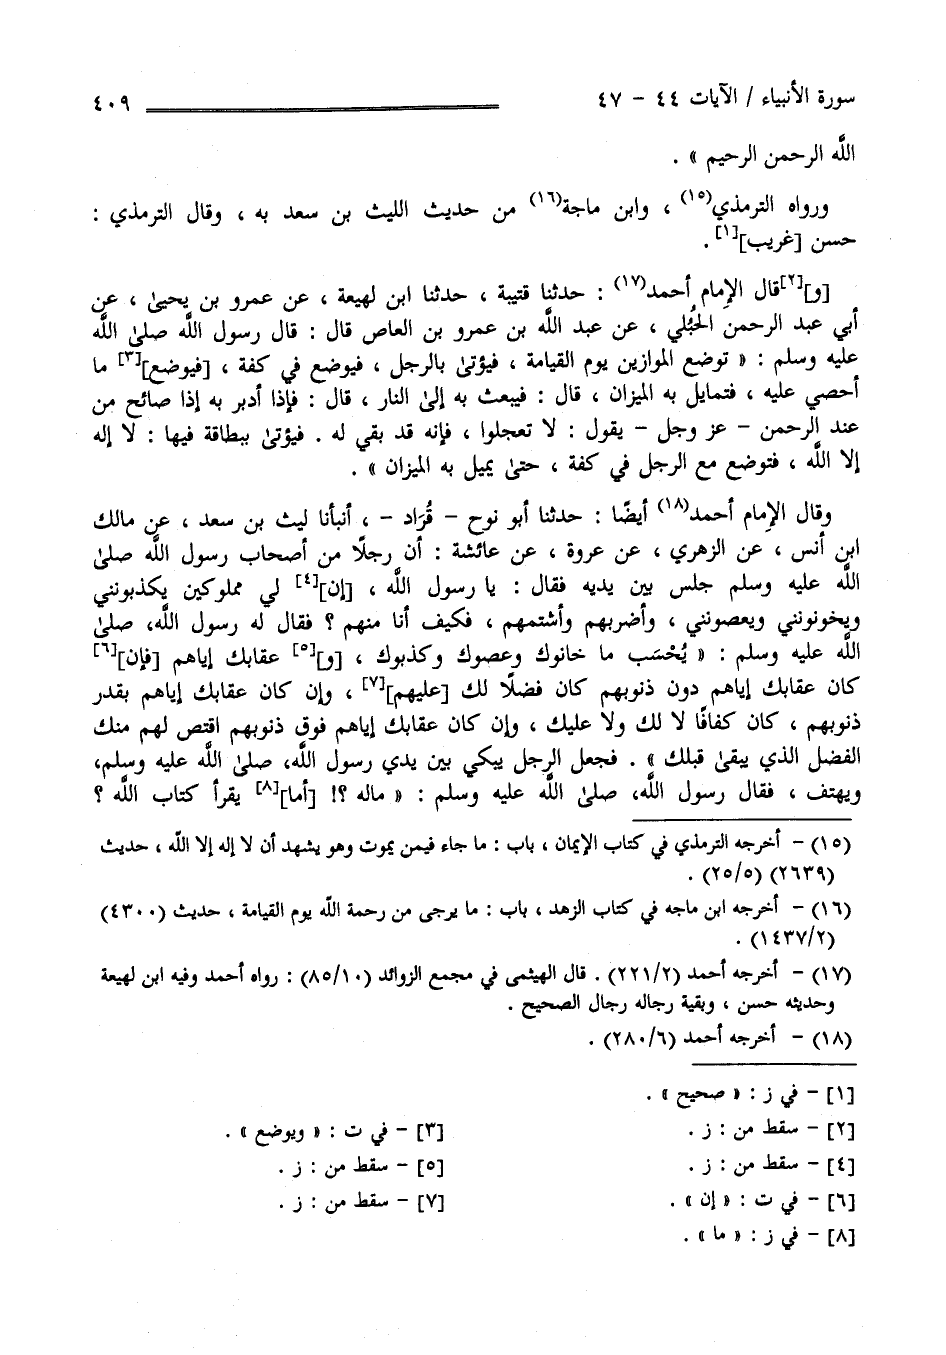 سورة الأنبياء / الآيات ٤٤ - ٤٧ ٤٠٩
اللَّه الرحمن الرحيم » .
ورواه الترمذي(١٥) ، وابن ماجة(١٦) من حديث الليث بن سعد به ، وقال الترمذي :
حسن [غريب][١] .
[و][٢]قال الإمام أحمد(١٧) : حدثنا قتيبة ، حدثنا ابن لهيعة ، عن عمرو بن يحيىٰ ، عن
أبي عبد الرحمن الحُبُلي ، عن عبد اللَّه بن عمرو بن العاص قال : قال رسول اللَّه صلىٰ اللَّه
عليه وسلم : « توضع الموازين يوم القيامة ، فيؤتىٰ بالرجل ، فيوضع في كفة ، [فيوضع][٣] ما
أحصي عليه ، فتمايل به الميزان ، قال : فيبعث به إلىٰ النار ، قال : فإذا أدبر به إذا صائح من
عند الرحمن - عز وجل - يقول : لا تعجلوا ، فإنه قد بقي له . فيؤتىٰ ببطاقة فيها : لا إله
إلا اللَّه ، فتوضع مع الرجل في كفة ، حتىٰ يميل به الميزان » .
وقال الإمام أحمد(١٨) أيضًا : حدثنا أبو نوح - قُرَاد - ، أنبأنا ليث بن سعد ، عن مالك
ابن أنس ، عن الزهري ، عن عروة ، عن عائشة : أن رجلًا من أصحاب رسول اللَّه صلىٰ
اللَّه عليه وسلم جلس بين يديه فقال : يا رسول اللَّه ، [إن][٤] لي مملوكين يكذبونني
ويخونونني ويعصونني ، وأضربهم وأشتمهم ، فكيف أنا منهم ؟ فقال له رسول اللَّه، صلىٰ
اللَّه عليه وسلم : « يُحْسَب ما خانوك وعصوك وكذبوك ، [و][٥] عقابك إياهم [فإن][٦]
كان عقابك إياهم دون ذنوبهم كان فضلًا لك [عليهم][٧] ، وإن كان عقابك إياهم بقدر
ذنوبهم ، كان كفافًا لا لك ولا عليك ، وإن كان عقابك إياهم فوق ذنوبهم اقتص لهم منك
الفضل الذي يبقىٰ قبلك » . فجعل الرجل يبكي بين يدي رسول اللَّه، صلىٰ اللَّه عليه وسلم،
ويهتف ، فقال رسول اللَّه، صلىٰ اللَّه عليه وسلم : « ماله ؟! [أما][٨] يقرأ كتاب اللَّه ؟
(١٥) - أخرجه الترمذي في كتاب الإيمان ، باب : ما جاء فيمن يموت وهو يشهد أن لا إله إلا اللَّه ، حديث
(٢٦٣٩) (٢٥/٥) .
(١٦) - أخرجه ابن ماجه في كتاب الزهد ، باب : ما يرجى من رحمة اللَّه يوم القيامة ، حديث (٤٣٠٠)
(١٤٣٧/٢) .
(١٧) - أخرجه أحمد (٢٢١/٢) . قال الهيثمى في مجمع الزوائد (٨٥/١٠) : رواه أحمد وفيه ابن لهيعة
وحديثه حسن ، وبقية رجاله رجال الصحيح .
(١٨) - أخرجه أحمد (٢٨٠/٦) .
[١] - في ز : « صحيح » .
[٢] - سقط من : ز . [٣] - في ت : « ويوضع » .
[٤] - سقط من : ز . [٥] - سقط من : ز .
[٦] - في ت : « إن » . [٧] - سقط من : ز .
[٨] - في ز : « ما » .